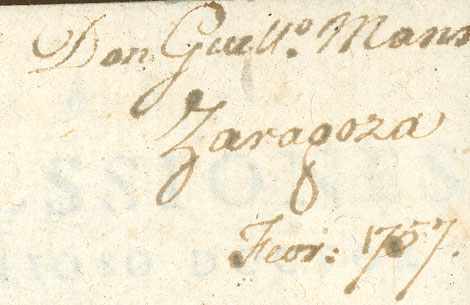 Don Guill.º Mann
Zaragoza
Feor: 1757.